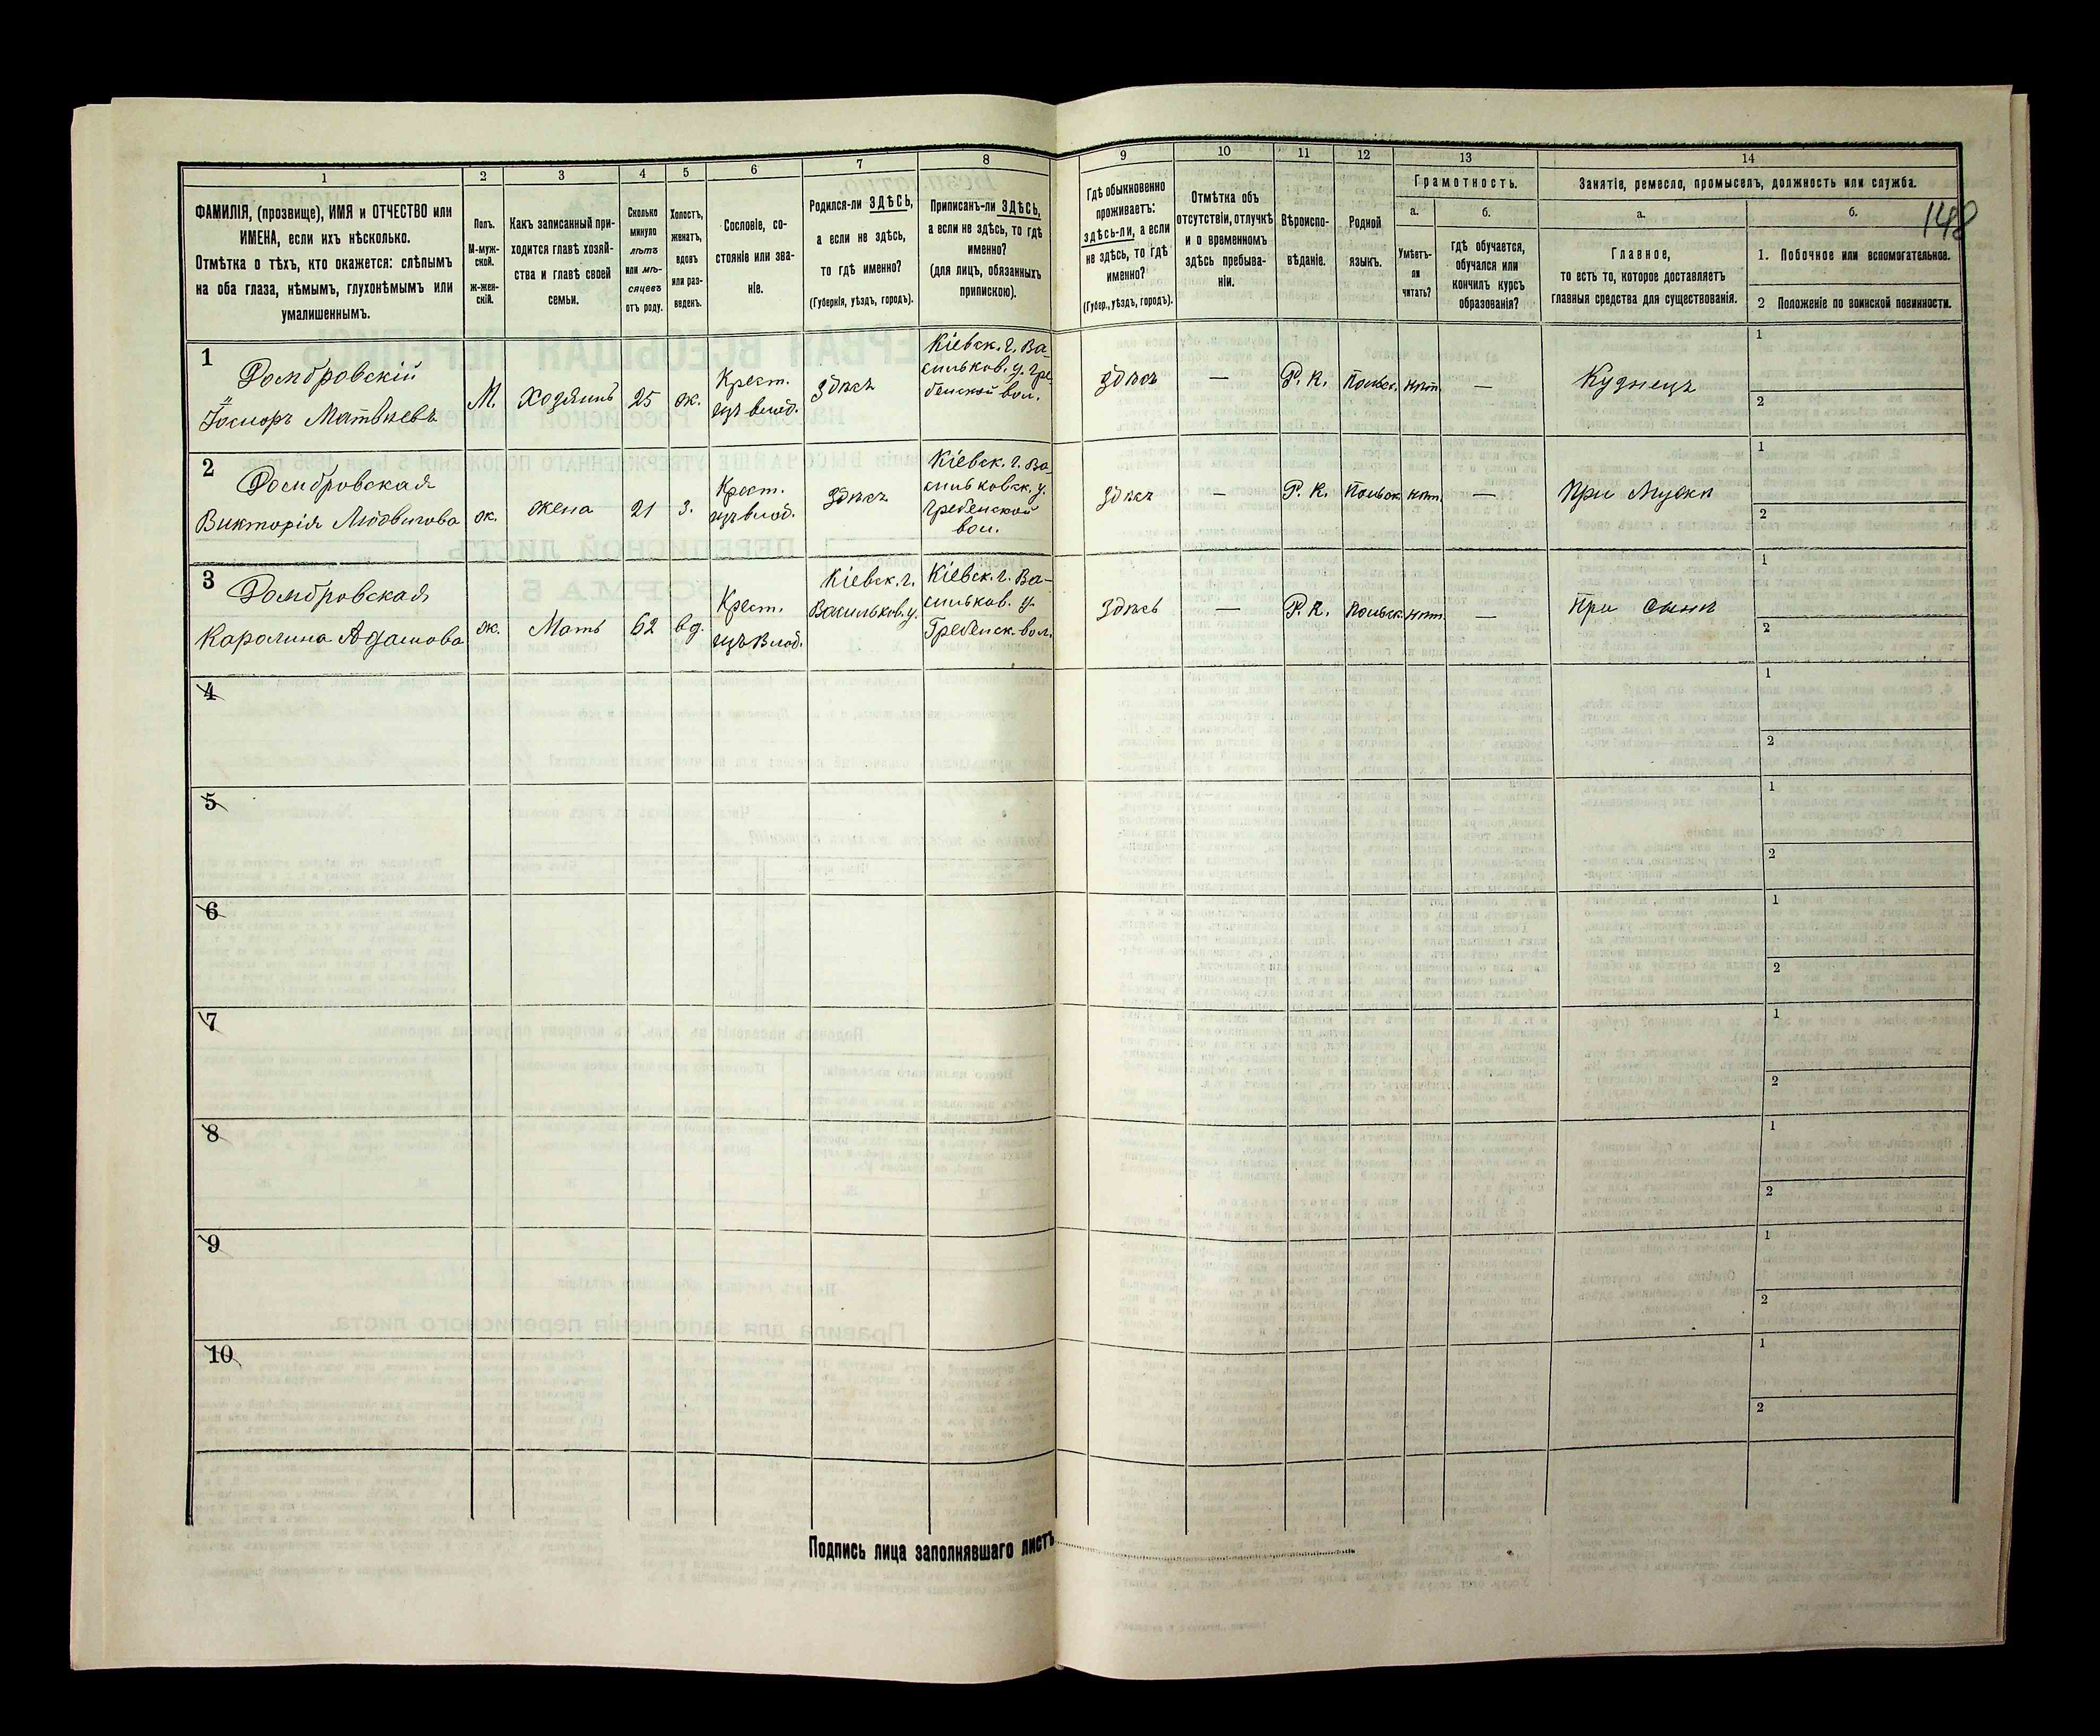 148
1
ФАМИЛІЯ, (прозвище), ИМЯ и ОТЧЕСТВО или
ИМЕНА, если ихъ нѣсколько.
Отмѣтка о тѣхъ, кто окажется: слѣпымъ
на оба глаза, нѣмымъ, глухонѣмымъ или
умалишеннымъ.
2
Полъ.
М-муж-
ской.
ж-жен-
скій.
3
Какъ записанный при-
ходится главѣ хозяй-
ства и главѣ своей
семьи.
4
Сколько
минуло
лѣтъ
или мѣ-
сяцевъ
отъ роду.
5
Холостъ,
женатъ,
вдовъ
или раз-
веденъ.
6
Сословіе, со-
стояніе или зва-
ніе.
7
Родился-ли ЗДѢСЬ,
а если не здѣсь,
то гдѣ именно?
(Губернія, уѣздъ, городъ).
8
Приписанъ-ли ЗДѢСЬ,
а если не здѣсь, то гдѣ
именно?
(для лицъ, обязанныхъ
припискою).
9
Гдѣ обыкновенно
проживаетъ:
здѣсь-ли, а если
не здѣсь, то гдѣ
именно?
(Губер., уѣздъ, городъ).
10
Отмѣтка объ
отсутствіи, отлучкѣ
и о временномъ
здѣсь пребыва-
ніи.
11
Вѣроиспо-
вѣданіе.
12
Родной
языкъ.
13
Грамотность.
а.
Умѣетъ-
ли
читать?
б.
гдѣ обучается,
обучался или
кончилъ курсъ
образованія?
14
Занятіе, ремесло, промыселъ, должность или служба.
а.
Главное,
то есть то, которое доставляетъ
главныя средства для существованія.
б.
1. Побочное или вспомогательное.
2 Положеніе по воинской повинности.
1
Домбровскій
Іосифъ Матвѣевъ
М.
Хозяинъ
25
ж.
Крест.
изъ влад.
Здѣсь
Кіевск. г. Ва-
сильков. у. Гре-
бенской вол.
Здѣсь
—
Р. К.
Польск.
нѣт.
—
Кузнецъ
1
2
2
Домбровская
Викторія Людвигова
ж.
жена
21
з.
Крест.
изъ влад.
Здѣсь
Кіевск. г. Ва-
сильковск. у.
Гребенской
вол.
Здѣсь
—
Р. К.
Польск.
нѣт.
—
При мужѣ
1
2
3
Домбровская
Каролина Адамова
ж.
Мать
62
вд.
Крест.
изъ влад.
Кіевск. г.
Васильков. у.
Кіевск. г. Ва-
сильков. у.
Гребенск. вол.
Здѣсь
—
Р. К.
Польск.
нѣт.
—
При сынѣ
1
2
4
1
2
5
1
2
6
1
2
7
1
2
8
1
2
9
1
2
10
1
2
Подпись лица заполнявшаго листъ